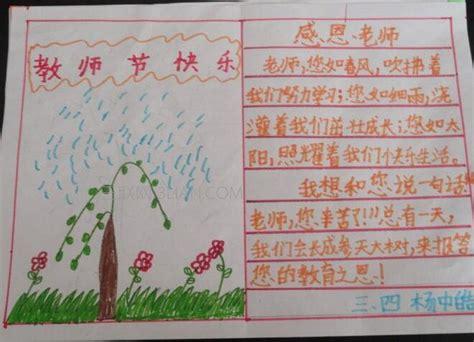 教师节快乐
感恩、老师
老师,您如春风,吹拂着
我们努力学习;您如细雨,浇
灌着我们茁壮成长;您如太
阳,照耀着我们个快乐生活。
我想和您说一句话
老师,您辛苦了!!!总有一天,
我们会长成参天大树,来报答
您的教育之恩!
三、四 杨中皓